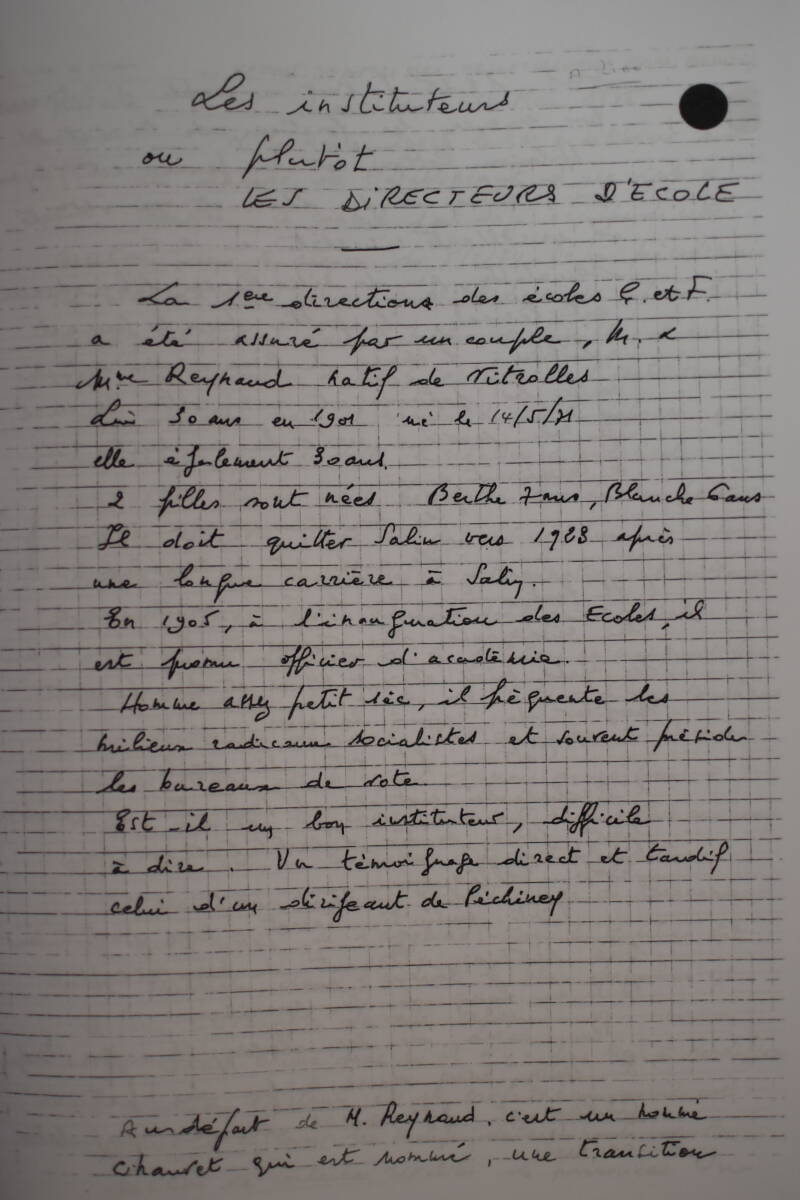 Les instituteurs
ou plutôt
LES DIRECTEURS D'ECOLE
La 1ere directions des écoles G. et F.
a été assuré par un couple, M. &
Mme Reynaud natif de Vitrolles
Lui 30 ans en 1901 né le 14/5/71
elle également 30 ans.
2 filles sont nées Berthe 7 ans, Blanche 6 ans
Il doit quitter Salin vers 1923 après
une longue carrière à Salin.
En 1905, à l'inauguration des Ecoles, il
est promu officier d'académie.
Homme assez petit sec, il fréquente les
milieux radicaux socialistes et souvent préside
les bureaux de vote
Est-il un bon instituteur, difficile
à dire. Un témoignage direct et tardif
celui d'un dirigeant de Péchiney
Au départ de M. Reynaud, c'est un nommé
Chauvet qui est nommé, une transition